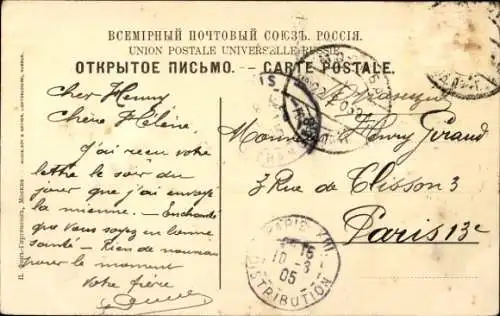 ВСЕМІРНЫЙ ПОЧТОВЫЙ СОЮЗЪ. РОССІЯ.
UNION POSTALE UNIVERSELLE RUSSIE
ОТКРЫТОЕ ПИСЬМО. — CARTE POSTALE.
Cher Henry
Chère Hélène,
J'ai reçu votre
lettre le soir du
jour que j'ai envoyé
la mienne. — Enchanté
que vous soyez en bonne
santé — Rien de nouveau
pour le moment
Votre frère
Monsieur Henry Giraud
3 Rue de Clisson 3
Paris 13e
PARIS XIII
10 - 3
05
DISTRIBUTION
Москва